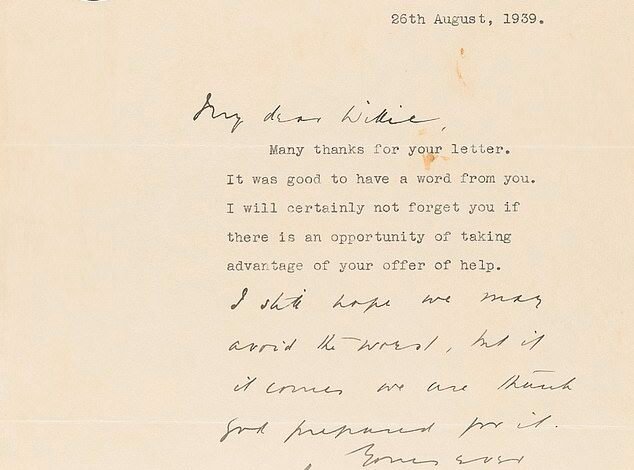 26th August, 1939.
My dear Willie,
Many thanks for your letter.
It was good to have a word from you.
I will certainly not forget you if
there is an opportunity of taking
advantage of your offer of help.
I still hope we may
avoid the worst, but if
it comes we are thank
God prepared for it.
Yours ever